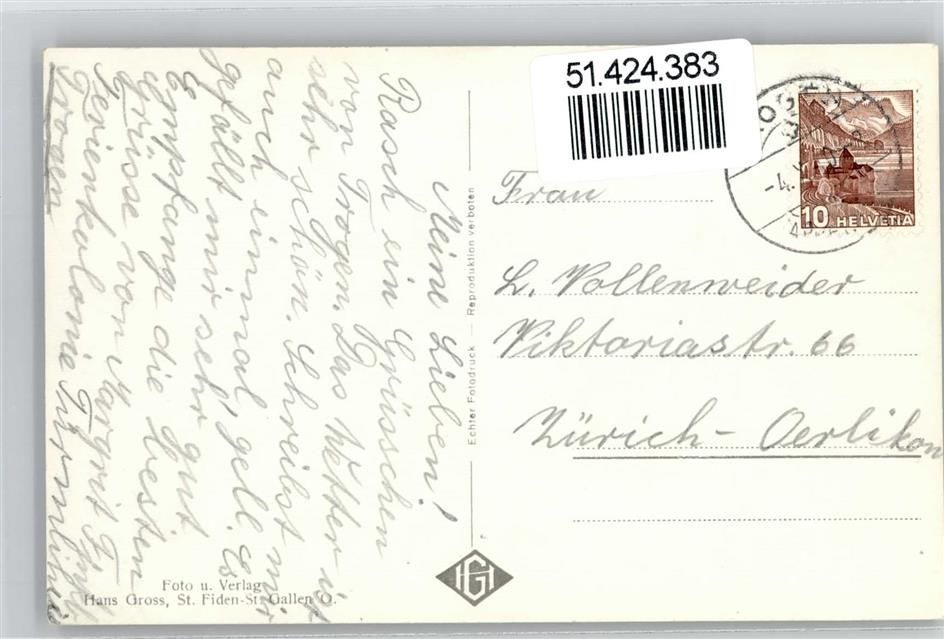 51.424.383
Meine Lieben!
Rasch ein Grüsschen
von Trogen. Das Wetter ist
sehr schön. Schreibst mir
auch einmal, gell. Es
gefällt mir sehr gut
Empfange die besten
Grüsse von Margrit
Ferienkolonie
Trogen
Echter Fotodruck — Reproduktion verboten
Frau
L. Vollenweider
Viktoriastr. 66
Zürich-Oerlikon
10 HELVETIA
HG
Foto u. Verlag
Hans Gross, St. Fiden-St. Gallen O.